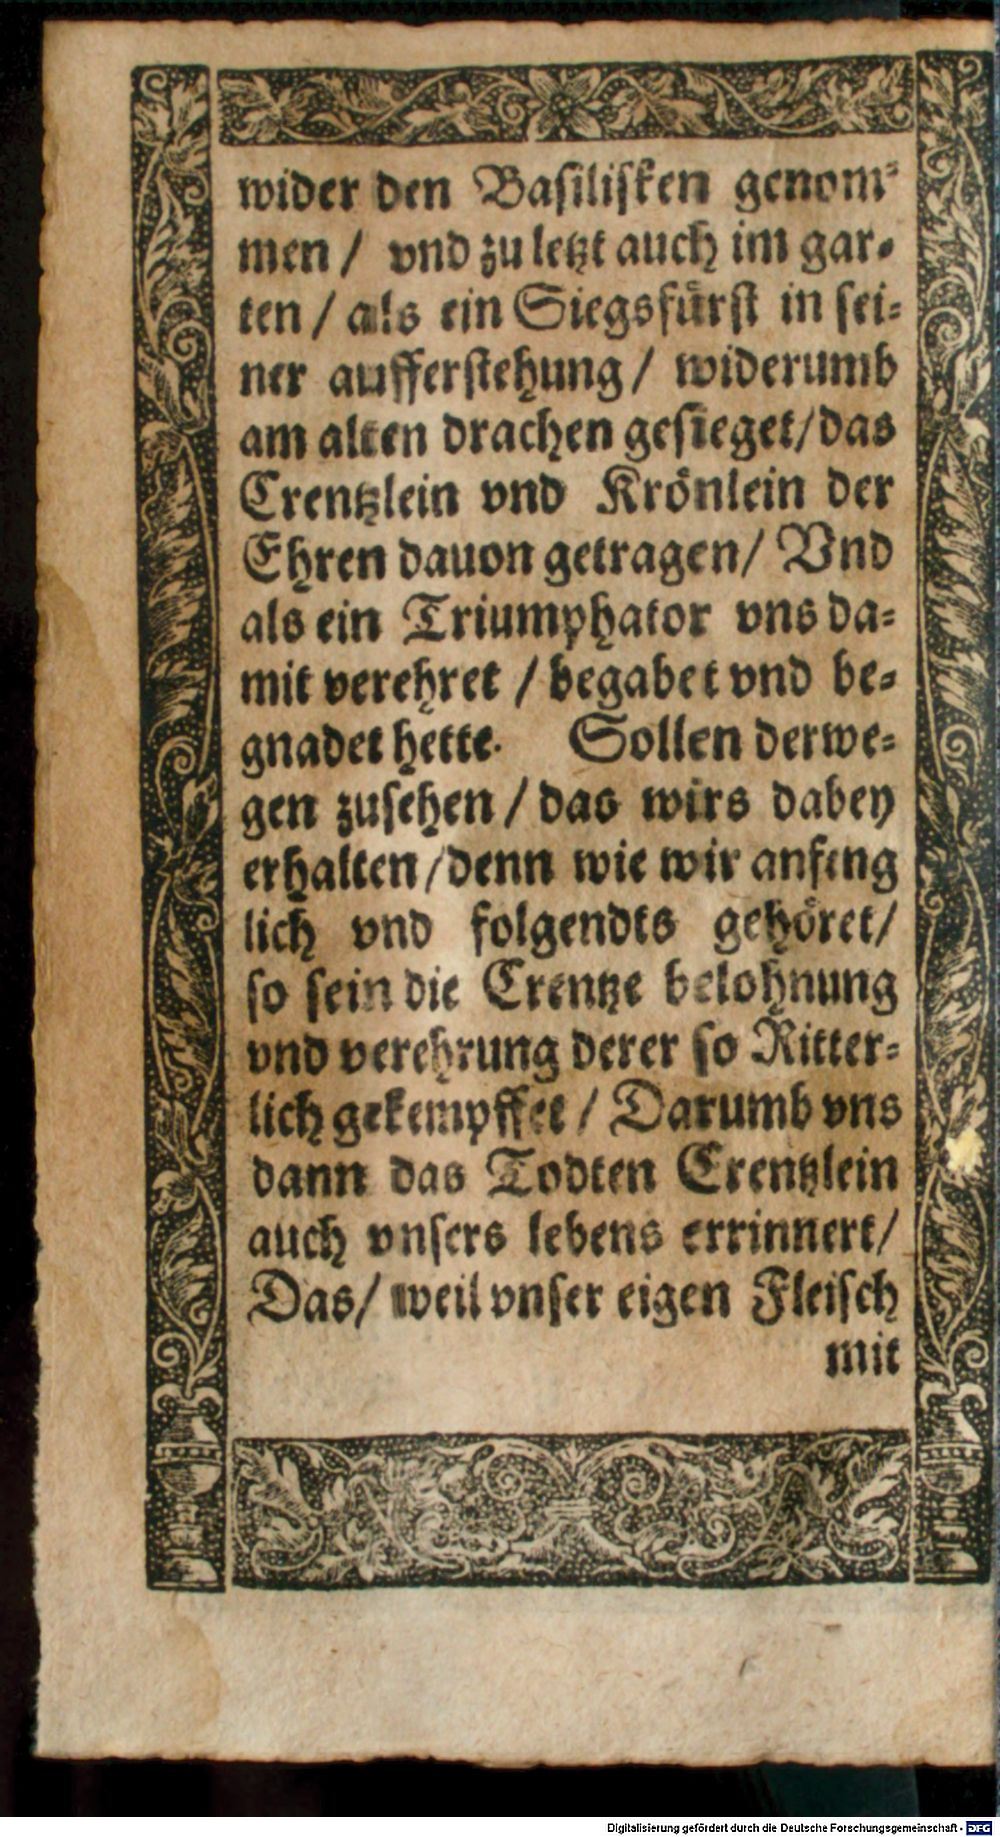 wider den Basilisken genom-
men / vnd zu letzt auch im gar-
ten / als ein Siegsfürst in sei-
ner aufferstehung / widerumb
am alten drachen gesieget / das
Crentzlein vnd Krönlein der
Ehren dauon getragen / Vnd
als ein Triumphator vns da-
mit verehret / begabet vnd be-
gnadet hette. Sollen derwe-
gen zusehen / das wirs dabey
erhalten / denn wie wir anfeng
lich vnd folgendts gehöret /
so sein die Crentze belohnung
vnd verehrung derer so Ritter-
lich gekempffet / Darumb vns
dann das Todten Crentzlein
auch vnsers lebens errinnert /
Das / weil vnser eigen Fleisch
mit
Digitalisierung gefördert durch die Deutsche Forschungsgemeinschaft - DFG